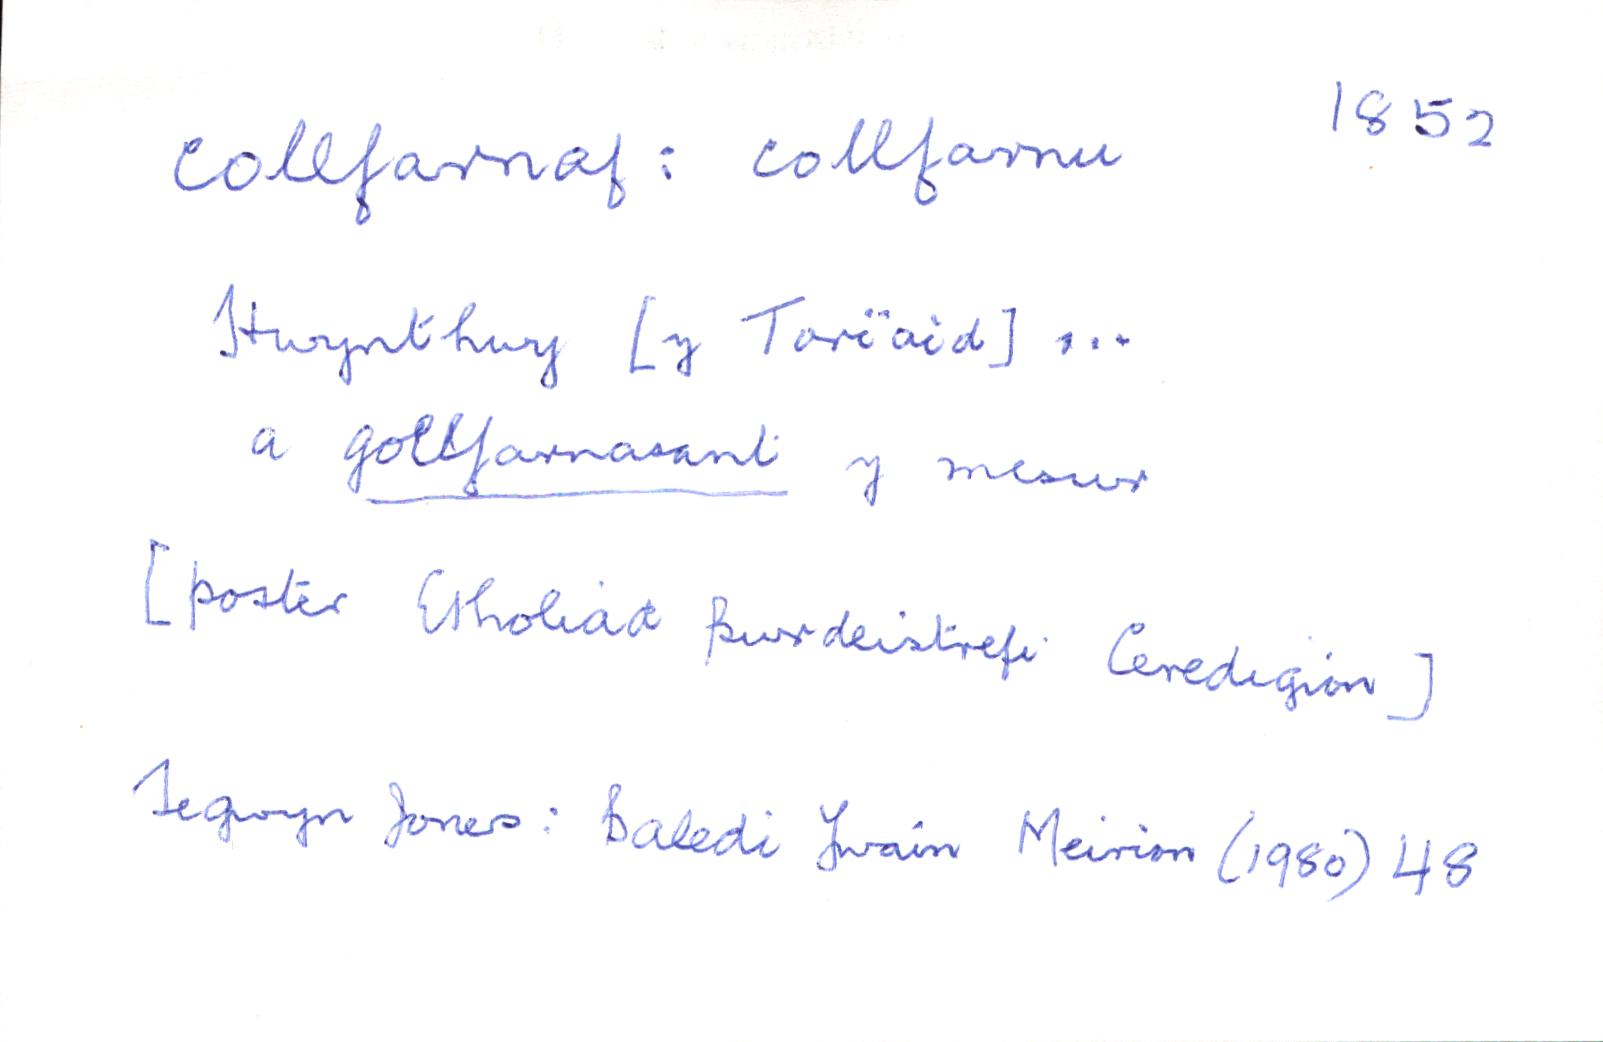 collfarnaf: collfarnu 1852
Hwynthwy [y Torïaid] ...
a gollfarnasant y mesur
[poster Etholiad Bwrdeistrefi Ceredigion]
Tegwyn Jones: Baledi Ywain Meirion (1980) 48